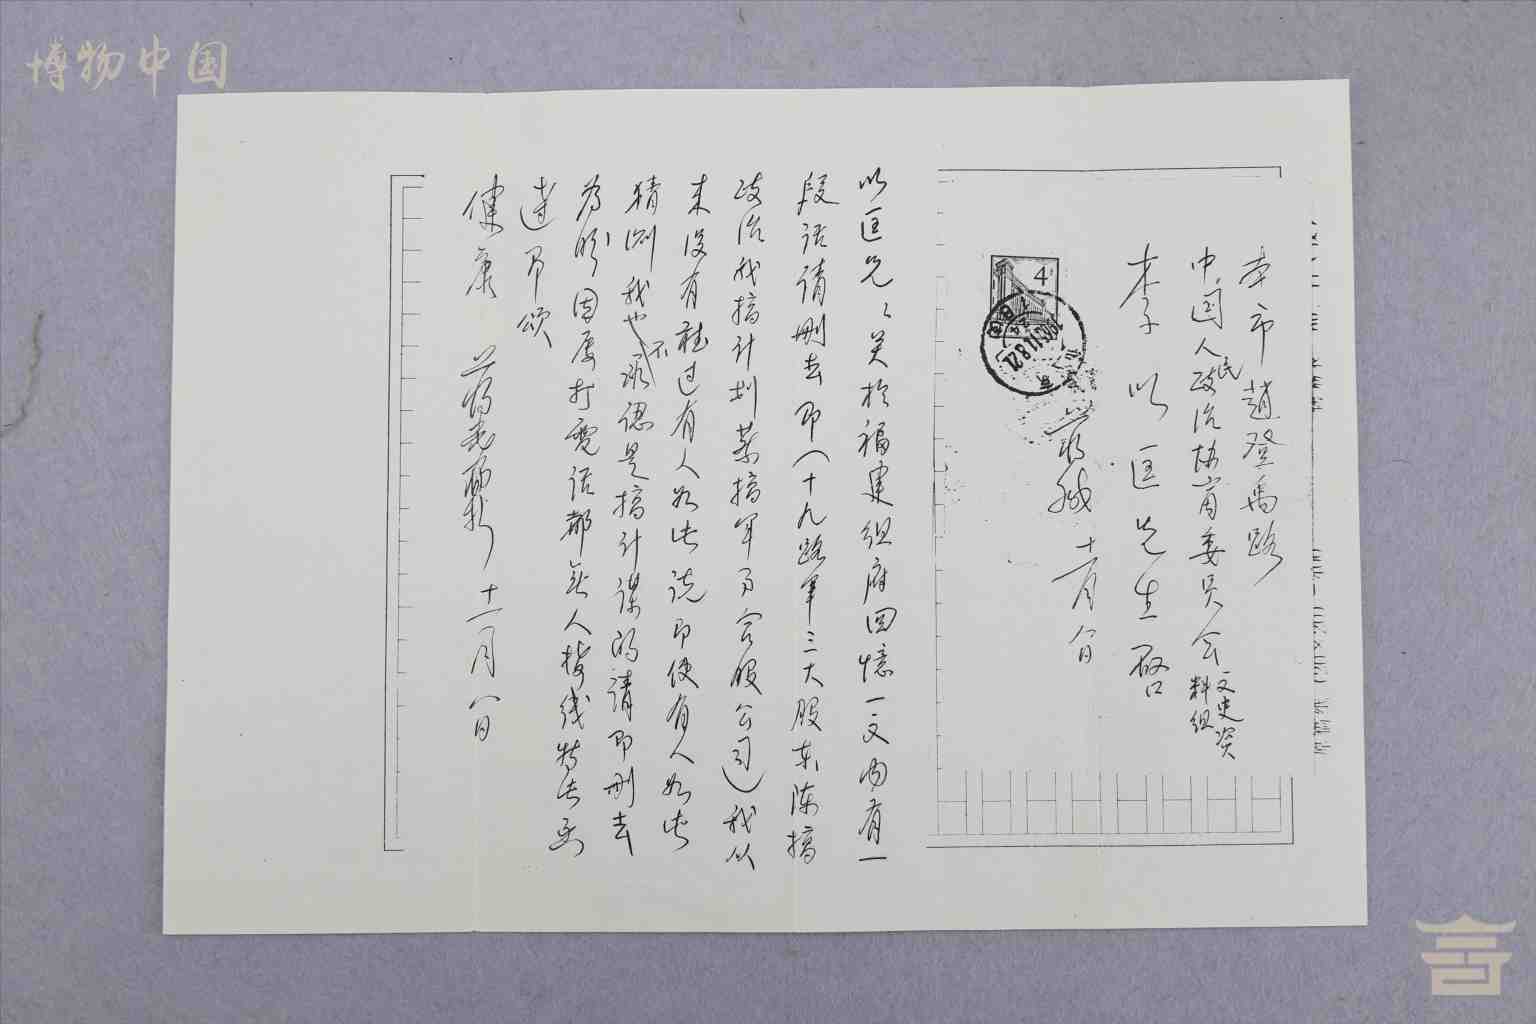 博物中国
本市趙登禹路
中国人民政治协商委員会文史资料组
李以匡先生啓
蒋缄 十一月八日
4
以匡兄：关於福建组府回憶一文内有一
段话请删去即（十九路军三大股东陈搞
政治我搞计划蔡搞军事合股公司）我从
来没有聽过有人如此说即使有人如此
猜测我也不承認是搞计谋的请即删去
为盼因屡打電话都无人接线特此函
達即颂
健康
蒋光鼐 十一月八日